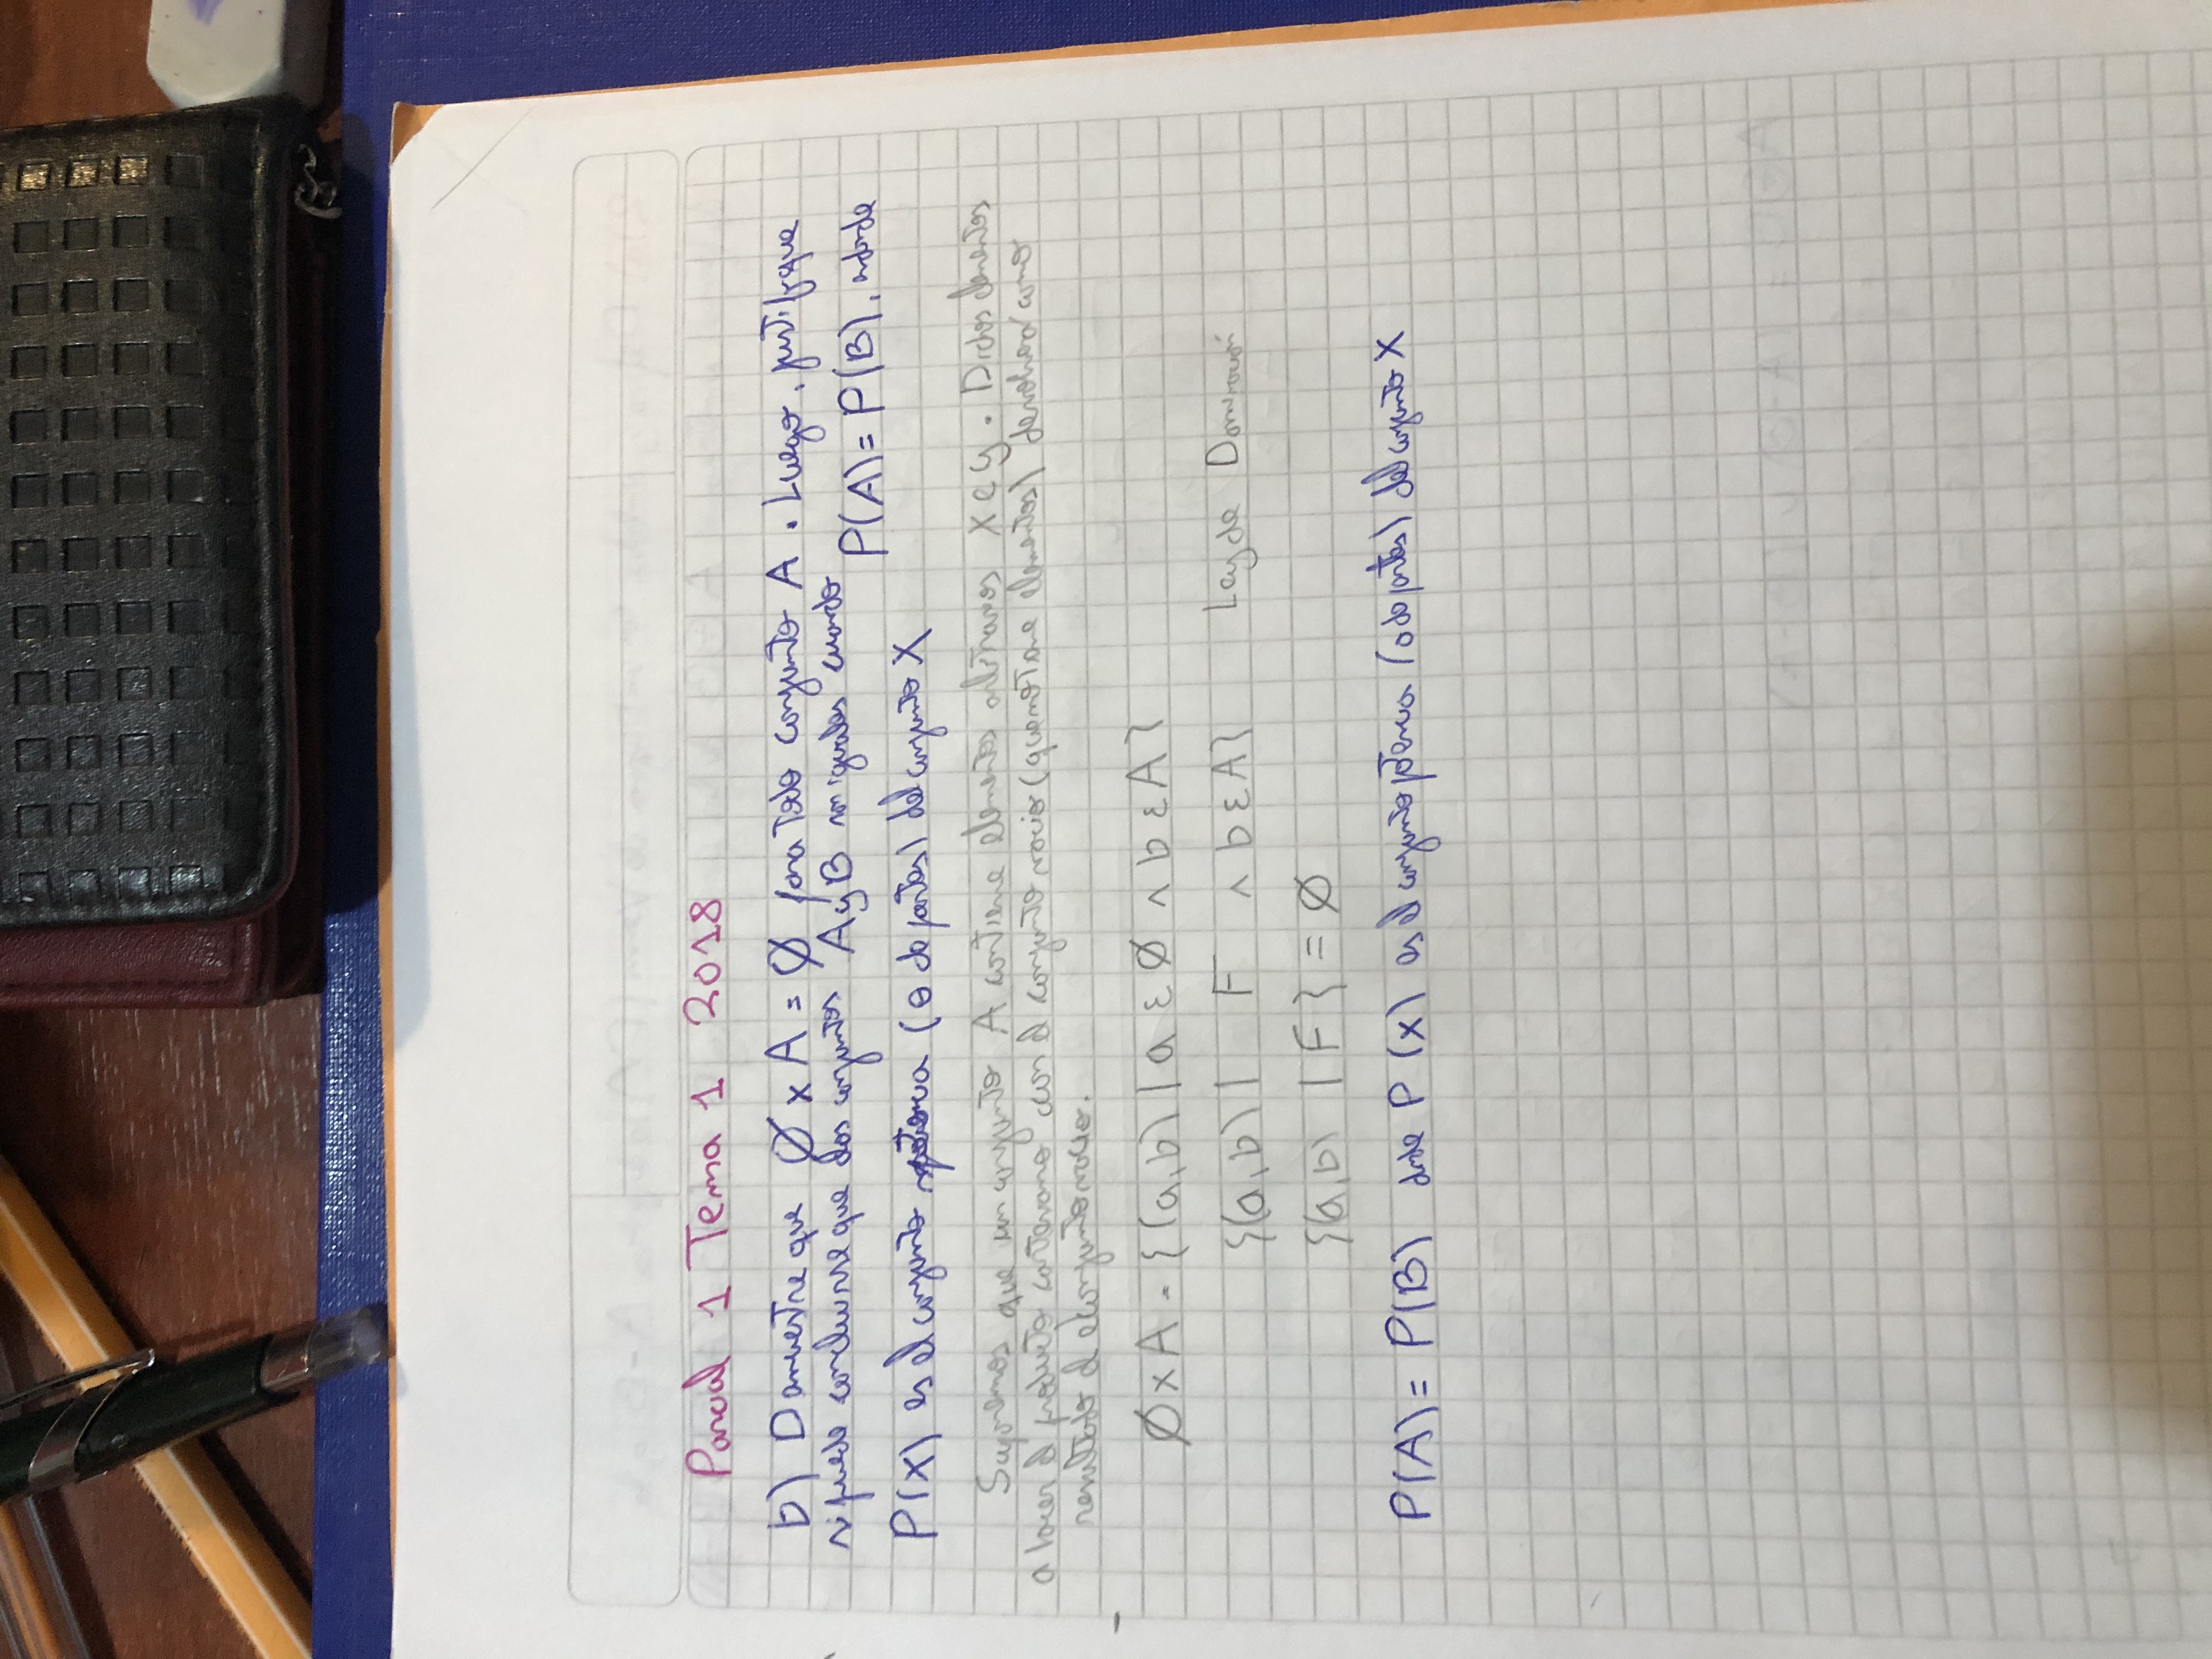 Parcial 1 Tema 1 2018
b) Demuestre que Ø x A = Ø para todo conjunto A . Luego, justifique
si puede concluirse que dos conjuntos A y B son iguales cuando
P(A) = P(B), en donde
P(X) es el conjunto potencia (o de partes) del conjunto X
Suponemos que un conjunto A contiene elementos arbitrarios X e y . Dichos elementos
a hacer el producto cartesiano con el conjunto vacio (que no tiene elementos) devolverá como
resultado el conjunto vacio.
Ø x A = {(a,b) | a ε Ø ∧ b ε A}
{(a,b) | F ∧ b ε A} Ley de Dominación
{(a,b) | F } = Ø
P(A) = P(B) donde P (x) es el conjunto potencia (o de partes) del conjunto X